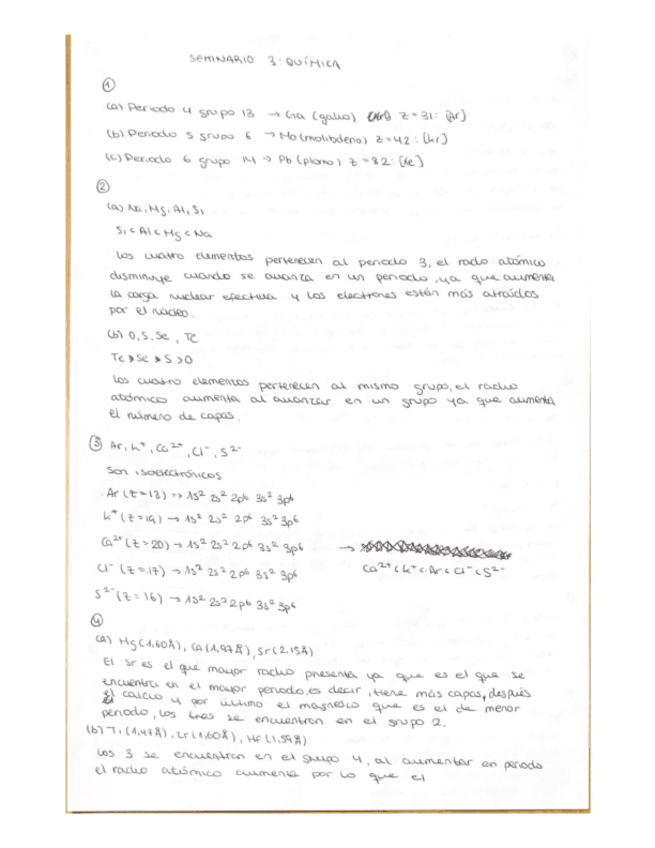 SEMINARIO 3: QUÍMICA
①
(a) Periodo 4 grupo 13 → Ga (galio) z=31: [Ar]
(b) Periodo 5 grupo 6 → Mo (molibdeno) z=42: [Kr]
(c) Periodo 6 grupo 14 → Pb (plomo) z=82: [Xe]
②
(a) Na, Mg, Al, Si
Si < Al < Mg < Na
Los cuatro elementos pertenecen al periodo 3, el radio atómico
disminuye cuando se avanza en un periodo, ya que aumenta
la carga nuclear efectiva y los electrones están más atraídos
por el núcleo.
(b) O, S, Se, Te
Te > Se > S > O
Los cuatro elementos pertenecen al mismo grupo, el radio
atómico aumenta al avanzar en un grupo ya que aumenta
el número de capas.
③ Ar, K⁺, Ca²⁺, Cl⁻, S²⁻
Son isoelectrónicos
Ar (z=18) → 1s² 2s² 2p⁶ 3s² 3p⁶
K⁺ (z=19) → 1s² 2s² 2p⁶ 3s² 3p⁶
Ca²⁺ (z=20) → 1s² 2s² 2p⁶ 3s² 3p⁶ →
Cl⁻ (z=17) → 1s² 2s² 2p⁶ 3s² 3p⁶ Ca²⁺ < K⁺ < Ar < Cl⁻ < S²⁻
S²⁻ (z=16) → 1s² 2s² 2p⁶ 3s² 3p⁶
④
(a) Mg (1,60Å), Ca (1,97Å), Sr (2,15Å)
El Sr es el que mayor radio presenta ya que es el que se
encuentra en el mayor periodo, es decir, tiene más capas, después
el calcio y por último el magnesio que es el de menor
periodo, los tres se encuentran en el grupo 2.
(b) Ti (1,47Å), Zr (1,60Å), Hf (1,59Å)
Los 3 se encuentran en el grupo 4, al aumentar en periodo
el radio atómico aumenta por lo que el